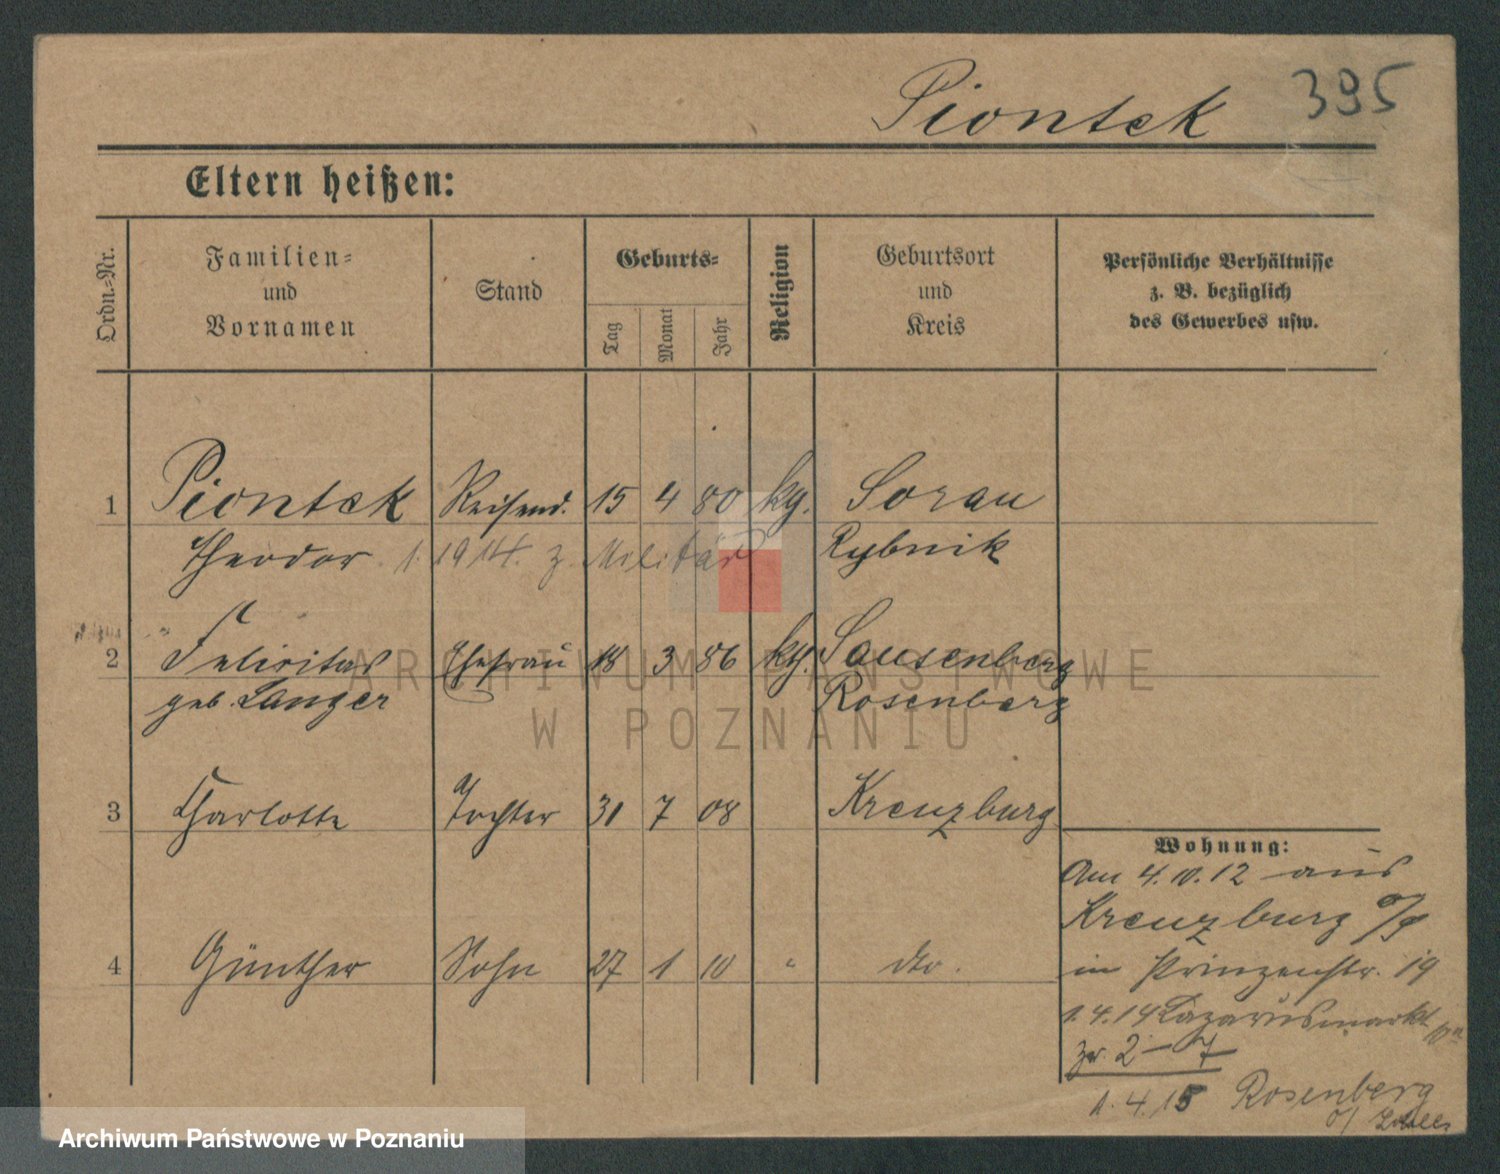 Piontek 395
Eltern heißen:
Ordn.-Nr.
Familien- und Vornamen
Stand
Geburts-
Tag
Monat
Jahr
Religion
Geburtsort und Kreis
Persönliche Verhältnisse
z. B. bezüglich
des Gewerbes usw.
1 Piontek Reisend. 15 4 80 kg. Sorau
Theodor. 1. 1914. z. Militär Rybnik
2 Felicitas Ehefrau 18 3 86 kg. Sausenberg
geb. Langer Rosenberg
3 Charlotte Tochter 31 7 08 Kreuzburg
4 Günther Sohn 27 1 10 " dto.
Wohnung:
Am 4.10.12 aus
Kreuzburg o/S
in Prinzenstr. 19
1.4.14 Lazarusmarkt
2 - 7
1.4.15 Rosenberg
ARCHIWUM PAŃSTWOWE
W POZNANIU
Archiwum Państwowe w Poznaniu